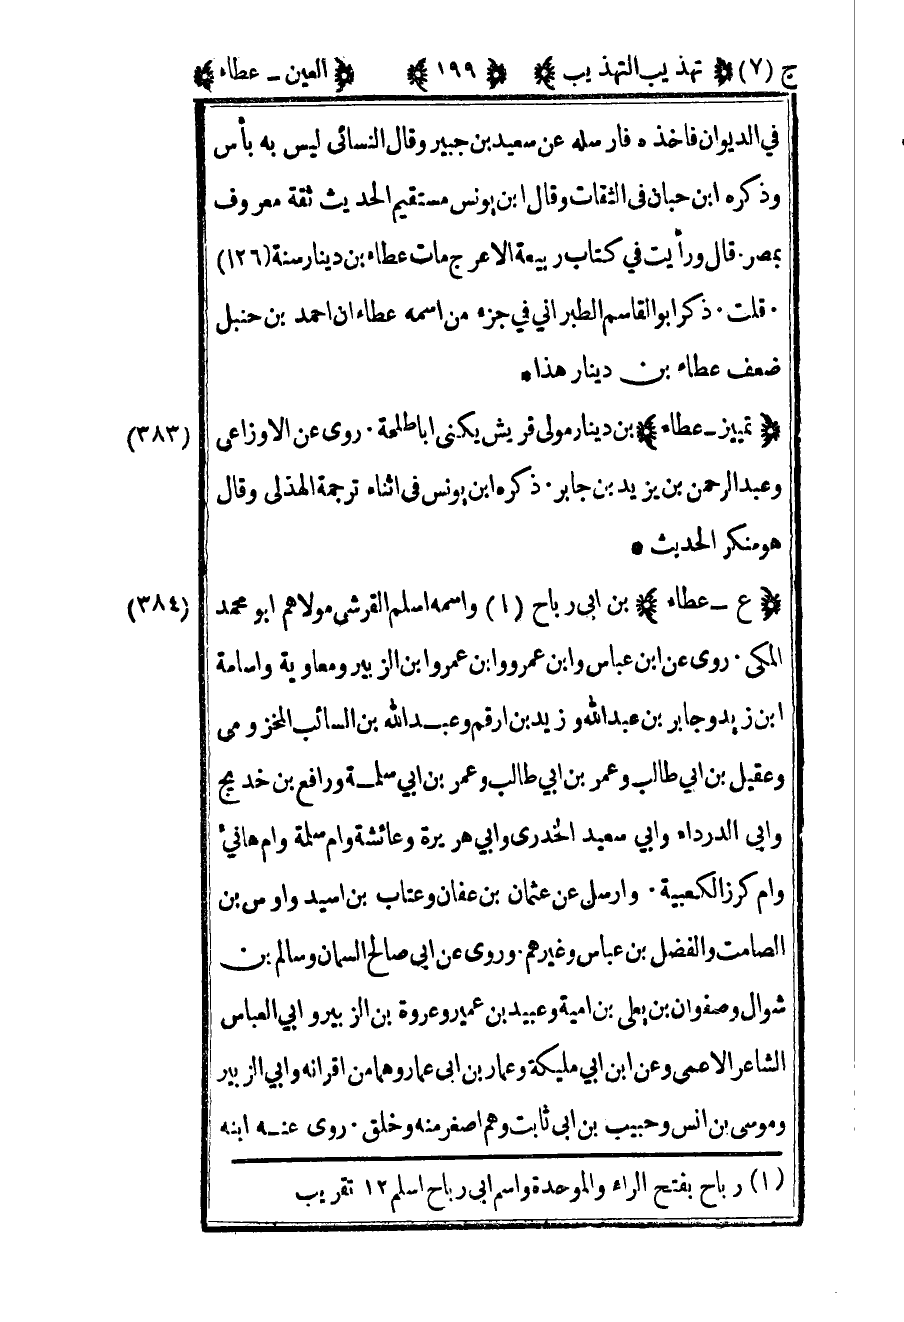 ج (٧) ﴿ تهذيب التهذيب ﴾ ﴿ ١٩٩ ﴾ ﴿ العين ـ عطاء ﴾
في الديوان فاخذه فارسله عن سعيد بن جبير وقال النسائى ليس به بأس
وذكره ابن حبان فى الثقات وقال ابن يونس مستقيم الحديث ثقة معروف
بمصر٠ قال ورأيت في كتاب ربيعة الاعرج مات عطاء بن دينار سنة (١٢٦)
٠ قلت ٠ ذكر ابو القاسم الطبراني في جزء من اسمه عطاء ان احمد بن حنبل
ضعف عطاء بن دينار هذا●
﴿ تمييز ـ عطاء ﴾ بن دينار مولى قريش يكنى ابا طلحة ٠ روى عن الاوزاعى (٣٨٣)
وعبد الرحمن بن يزيد بن جابر ٠ ذكره ابن يونس فى اثناء ترجمة الهذلى وقال
هو منكر الحديث ●
﴿ ع ـ عطاء ﴾ بن ابى رباح (١) واسمه اسلم القرشى مولاهم ابو محمد (٣٨٤)
المكى ٠ روى عن ابن عباس وابن عمرو وابن عمر وابن الزبير ومعاوية واسامة
ابن زيد وجابر بن عبد الله وزيد بن ارقم وعبد الله بن السائب المخزومى
وعقيل بن ابي طالب وعمر بن ابي طالب وعمر بن ابي سلمة ورافع بن خديج
وابى الدرداء وابي سعيد الخدرى وابي هريرة وعائشة وام سلمة وام هانئ
وام كرز الكعبية ٠ وارسل عن عثمان بن عفان وعتاب بن اسيد واوس بن
الصامت والفضل بن عباس وغيرهم ٠ وروى عن ابى صالح السمان وسالم بن
شوال وصفوان بن يعلى بن امية وعبيد بن عمير وعروة بن الزبير و ابي العباس
الشاعر الاعمى وعن ابن ابي مليكة وعمار بن ابى عمار وهما من اقرانه وابي الزبير
وموسى بن انس وحبيب بن ابى ثابت وهم اصغر منه وخلق ٠ روى عنه ابنه
(١) رباح بفتح الراء والموحدة واسم ابى رباح اسلم ١٢ تقريب